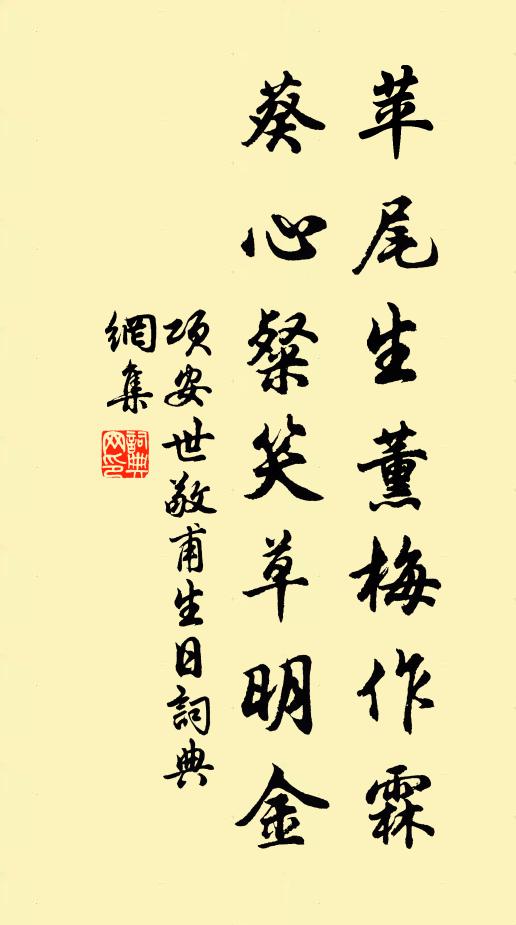 苹尾生薰梅作霖
葵心粲笑草明金
项安世敬甫生日詞典
網集
詞典网印